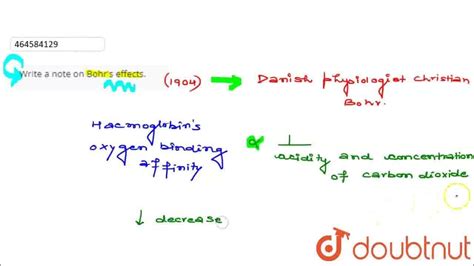 464584129
Write a note on Bohr's effects.
(1904)
Danish physiologist christian
Bohr.
Haemoglobin's
oxygen binding
affinity
∝ 1
acidity and concentration
of carbon dioxide
↓ decrease
doubtnut